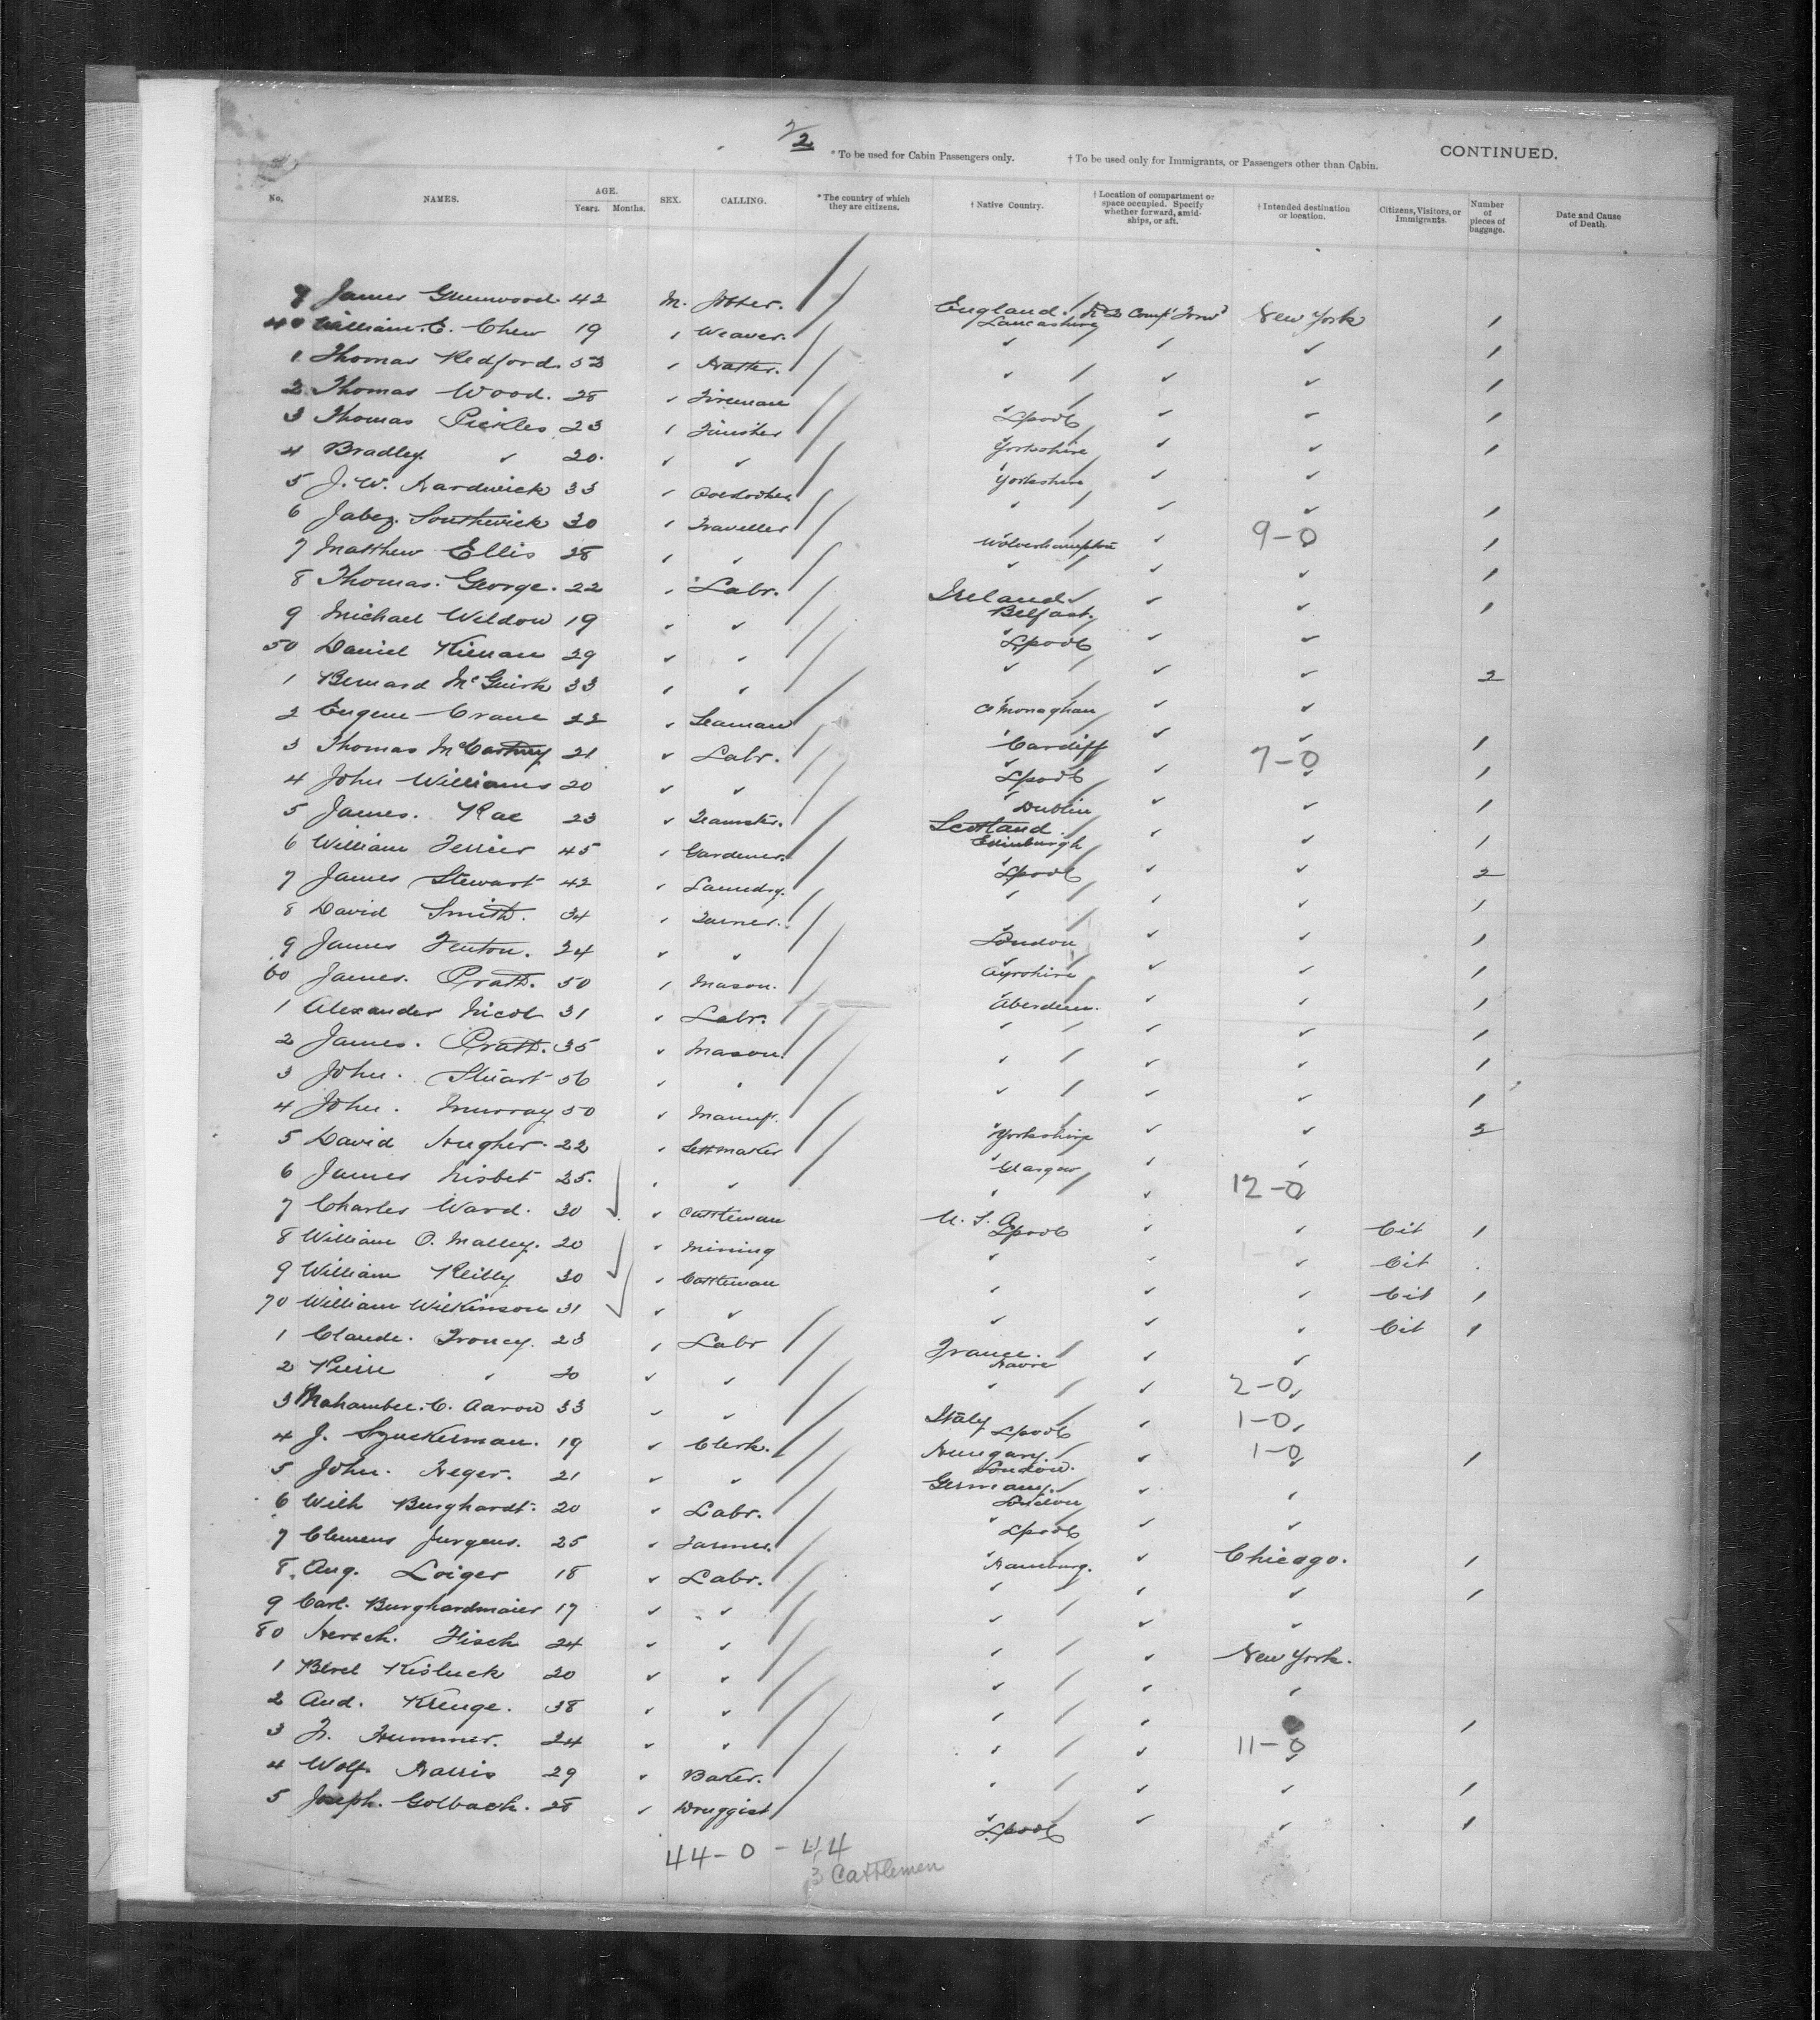 2/2
* To be used for Cabin Passengers only. † To be used only for Immigrants, or Passengers other than Cabin. CONTINUED.
No. NAMES. AGE. Years. Months. SEX. CALLING. * The country of which they are citizens. † Native Country. † Location of compartment or space occupied. Specify whether forward, amidships, or aft. † Intended destination or location. Citizens, Visitors, or Immigrants. Number of pieces of baggage. Date and Cause of Death.
9 James Greenwood. 42 M. England. Lancashire New York 1
40 William. E. Chew 19 Weaver. 1
1 Thomas Redford. 53 Hatter. 1
2 Thomas Wood. 28 Fireman Lpool 1
3 Thomas Pickles 23 Finisher Yorkshire 1
4 Bradley 20. Yorkshire
5 J. W. Hardwick 33 1
6 Jabez. Southwick 30 Traveller Wolverhampton 9-0 1
7 Matthew Ellis 28 1
8 Thomas. George. 22 Labr. Ireland. Belfast. 1
9 Michael Wildow 19 Lpool
50 Daniel Kiernan 29 2
1 Bernard McGuirk 33 Co Monaghan
2 Eugene Crane 22 Seaman Cardiff 1
3 Thomas McCartney 21 Labr. Lpool 7-0 1
4 John Williams 20 Dublin 1
5 James. Rae 23 Teamster. Scotland. Edinburgh 1
6 William Ferrier 45 Gardener. Lpool 2
7 James Stewart 42 Laundry. 1
8 David Smith. 34 Turner. London 1
9 James Fenton. 24 Ayrshire 1
60 James. Pratt. 50 Mason. Aberdeen. 1
1 Alexander Nicol 31 Labr. 1
2 James. Pratt. 35 Mason. 1
3 John. Stuart 56 1
4 John. Murray 50 Manuf. Yorkshire 2
5 David Hughes. 22 Settmaker Glasgow
6 James Nisbet 25. 12-0
7 Charles Ward. 30 Cattleman U. S. A. Lpool Cit 1
8 William O. Malley. 20 Mining Cit
9 William Reilly 30 Cattleman Cit 1
70 William Wilkinson 31 Cit 1
1 Claude. Troncy. 23 Labr France. Havre
2 Pierre 30 2-0
3 Mahambee. C. Aaron 33 Italy Lpool 1-0
4 J. Szuckerman. 19 Clerk. Hungary London. 1-0 1
5 John. Heger. 21 Germany. London
6 Wilh Burghardt. 20 Labr. Lpool
7 Clemens Jurgens. 25 Farmer. Hamburg. Chicago. 1
8 Aug. Loiger 18 Labr. 1
9 Carl. Burghardmaier 17
80 Hersch. Fisch 24 New York.
1 Berel Kisluck 20
2 And. Krenge. 38 1
3 Fr. Hummer. 24 11-0
4 Wolf. Harris 29 Baker. 1
5 Joseph. Golback. 28 Druggist Lpool 1
44-0-44
3 Cattlemen